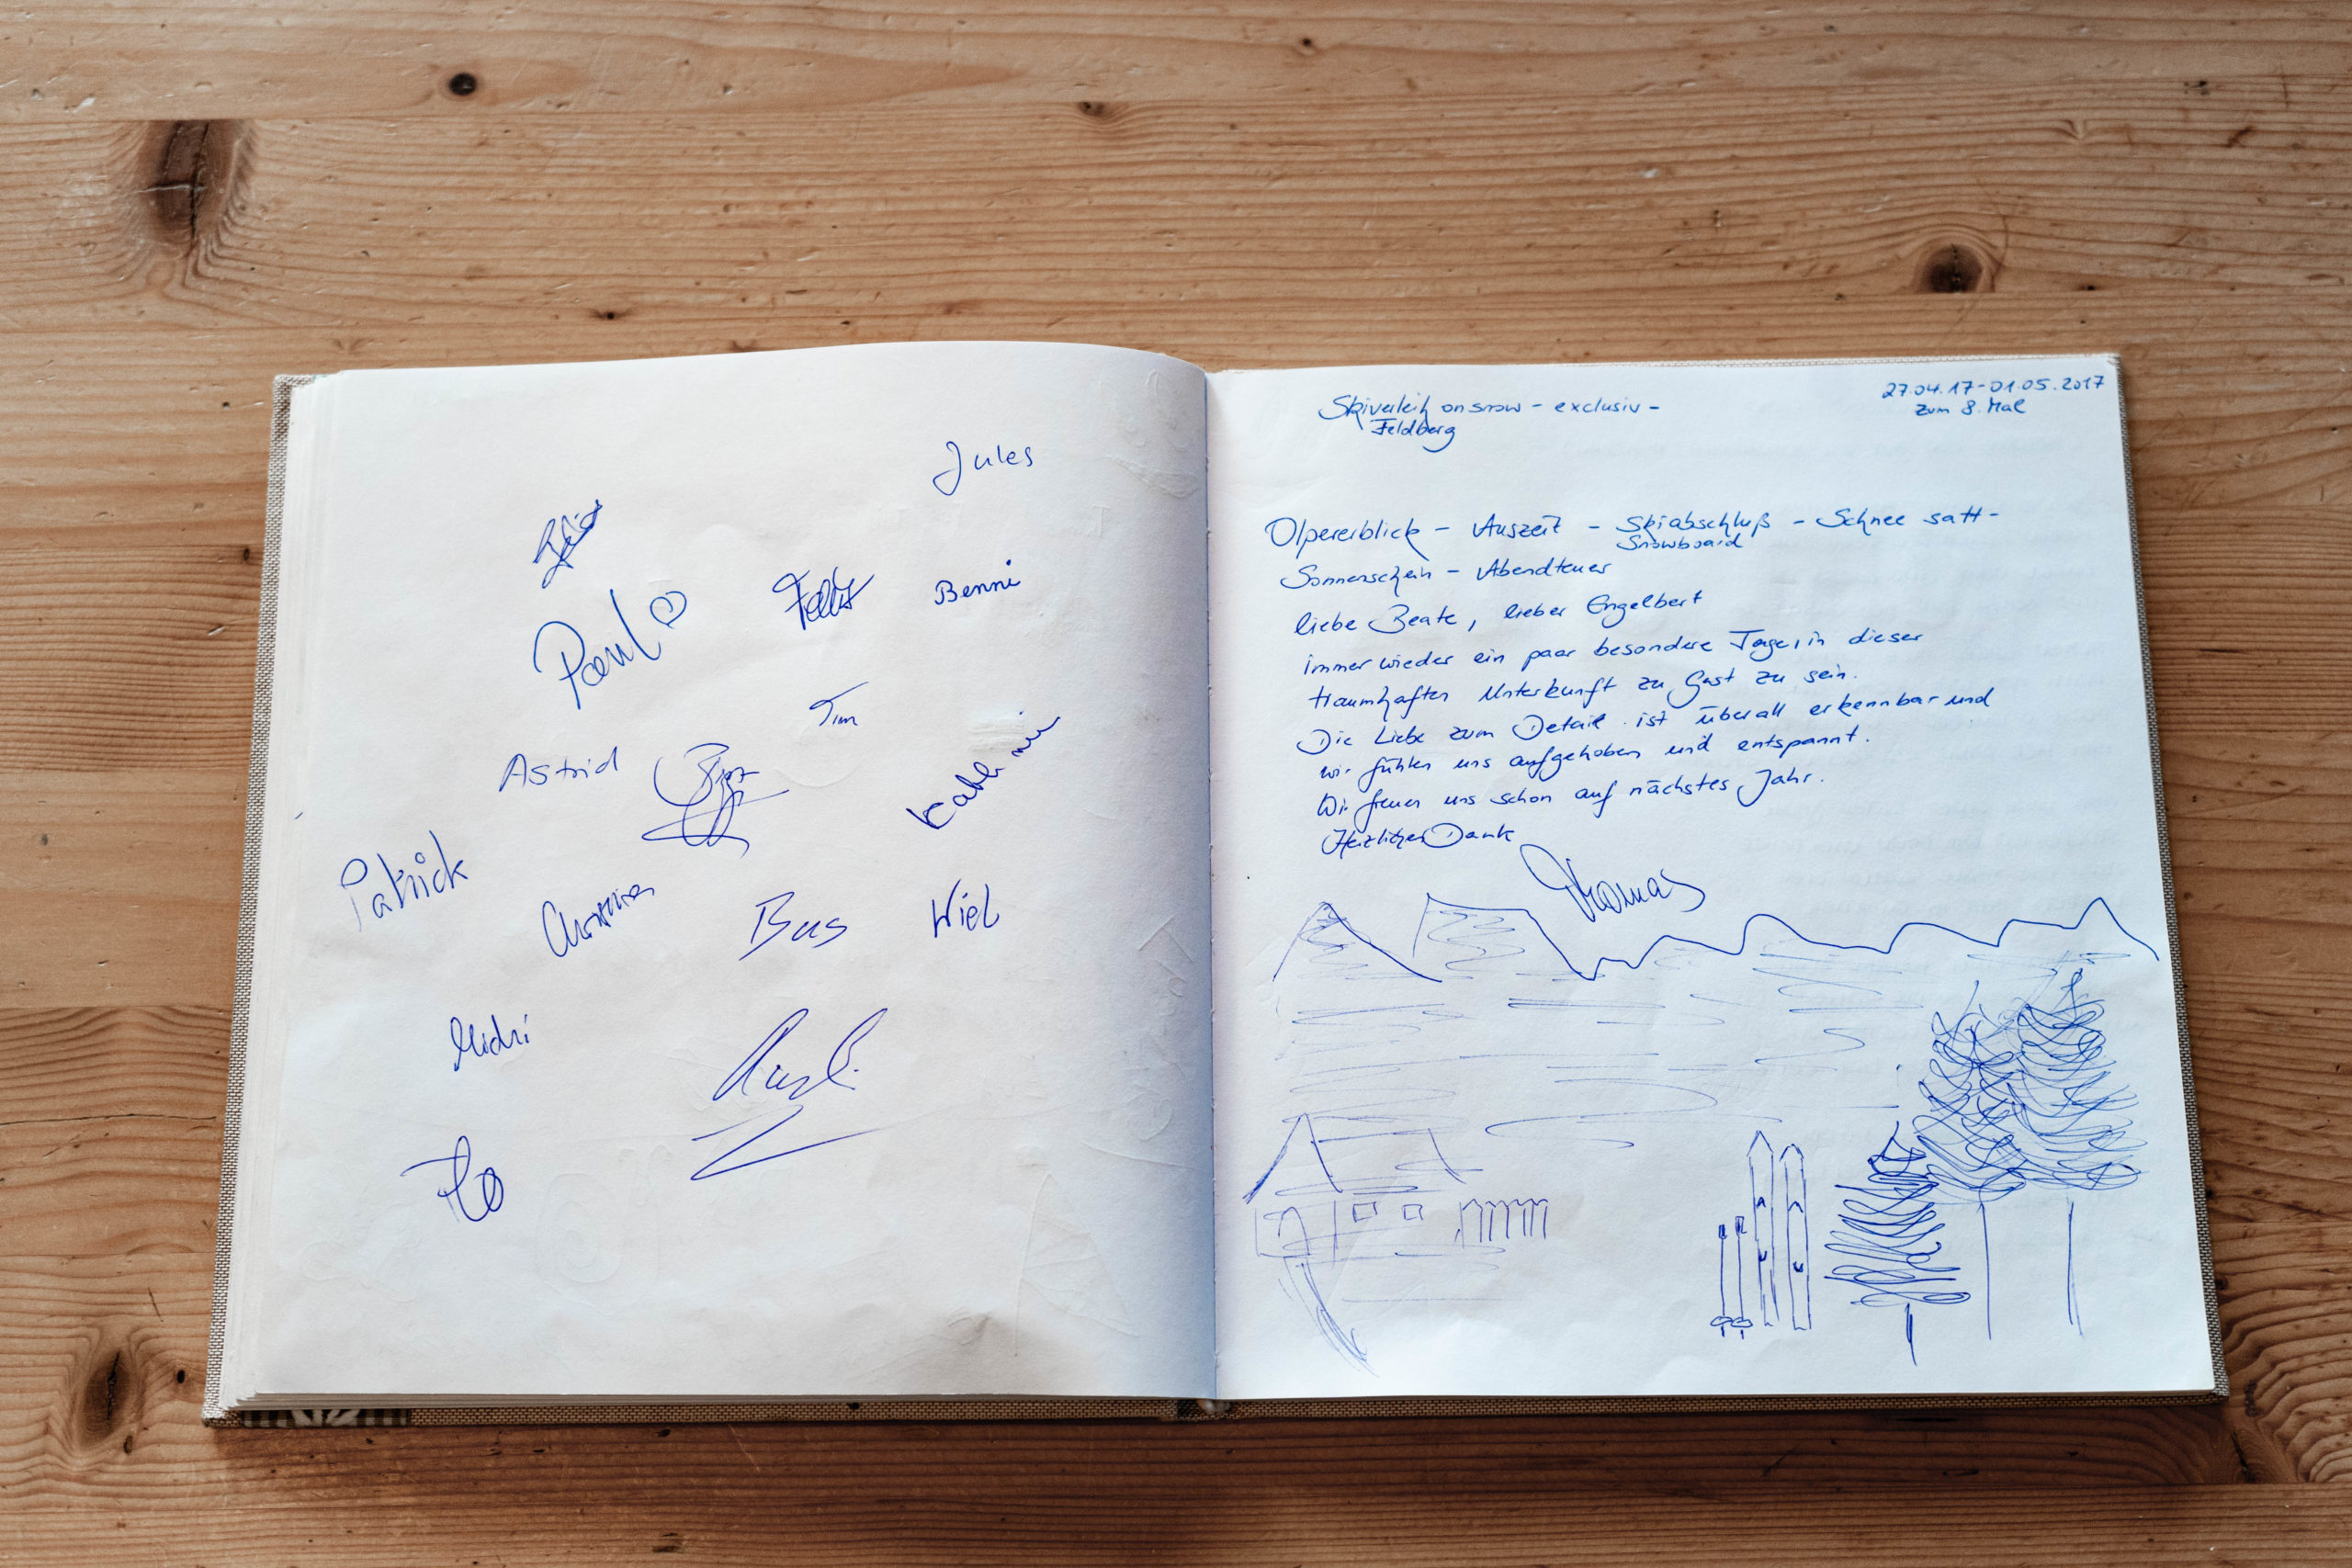 Jules
Paul
Felix
Benni
Tim
Astrid
Katharina
Patrick
Christina
Bus
Wiel
Michi
Flo
Skiverleih onsnow - exclusiv -
Feldberg
27.04.17-01.05.2017
zum 8. Mal
Olpererblick - Auszeit - Skiabschluß - Schnee satt -
Snowboard
Sonnenschein - Abendteuer
liebe Beate, lieber Engelbert
immer wieder ein paar besondere Tage, in dieser
traumhaften Unterkunft zu Gast zu sein.
Die Liebe zum Detail ist überall erkennbar und
wir fühlen uns aufgehoben und entspannt.
Wir freuen uns schon auf nächstes Jahr.
Herzlichen Dank
Thomas